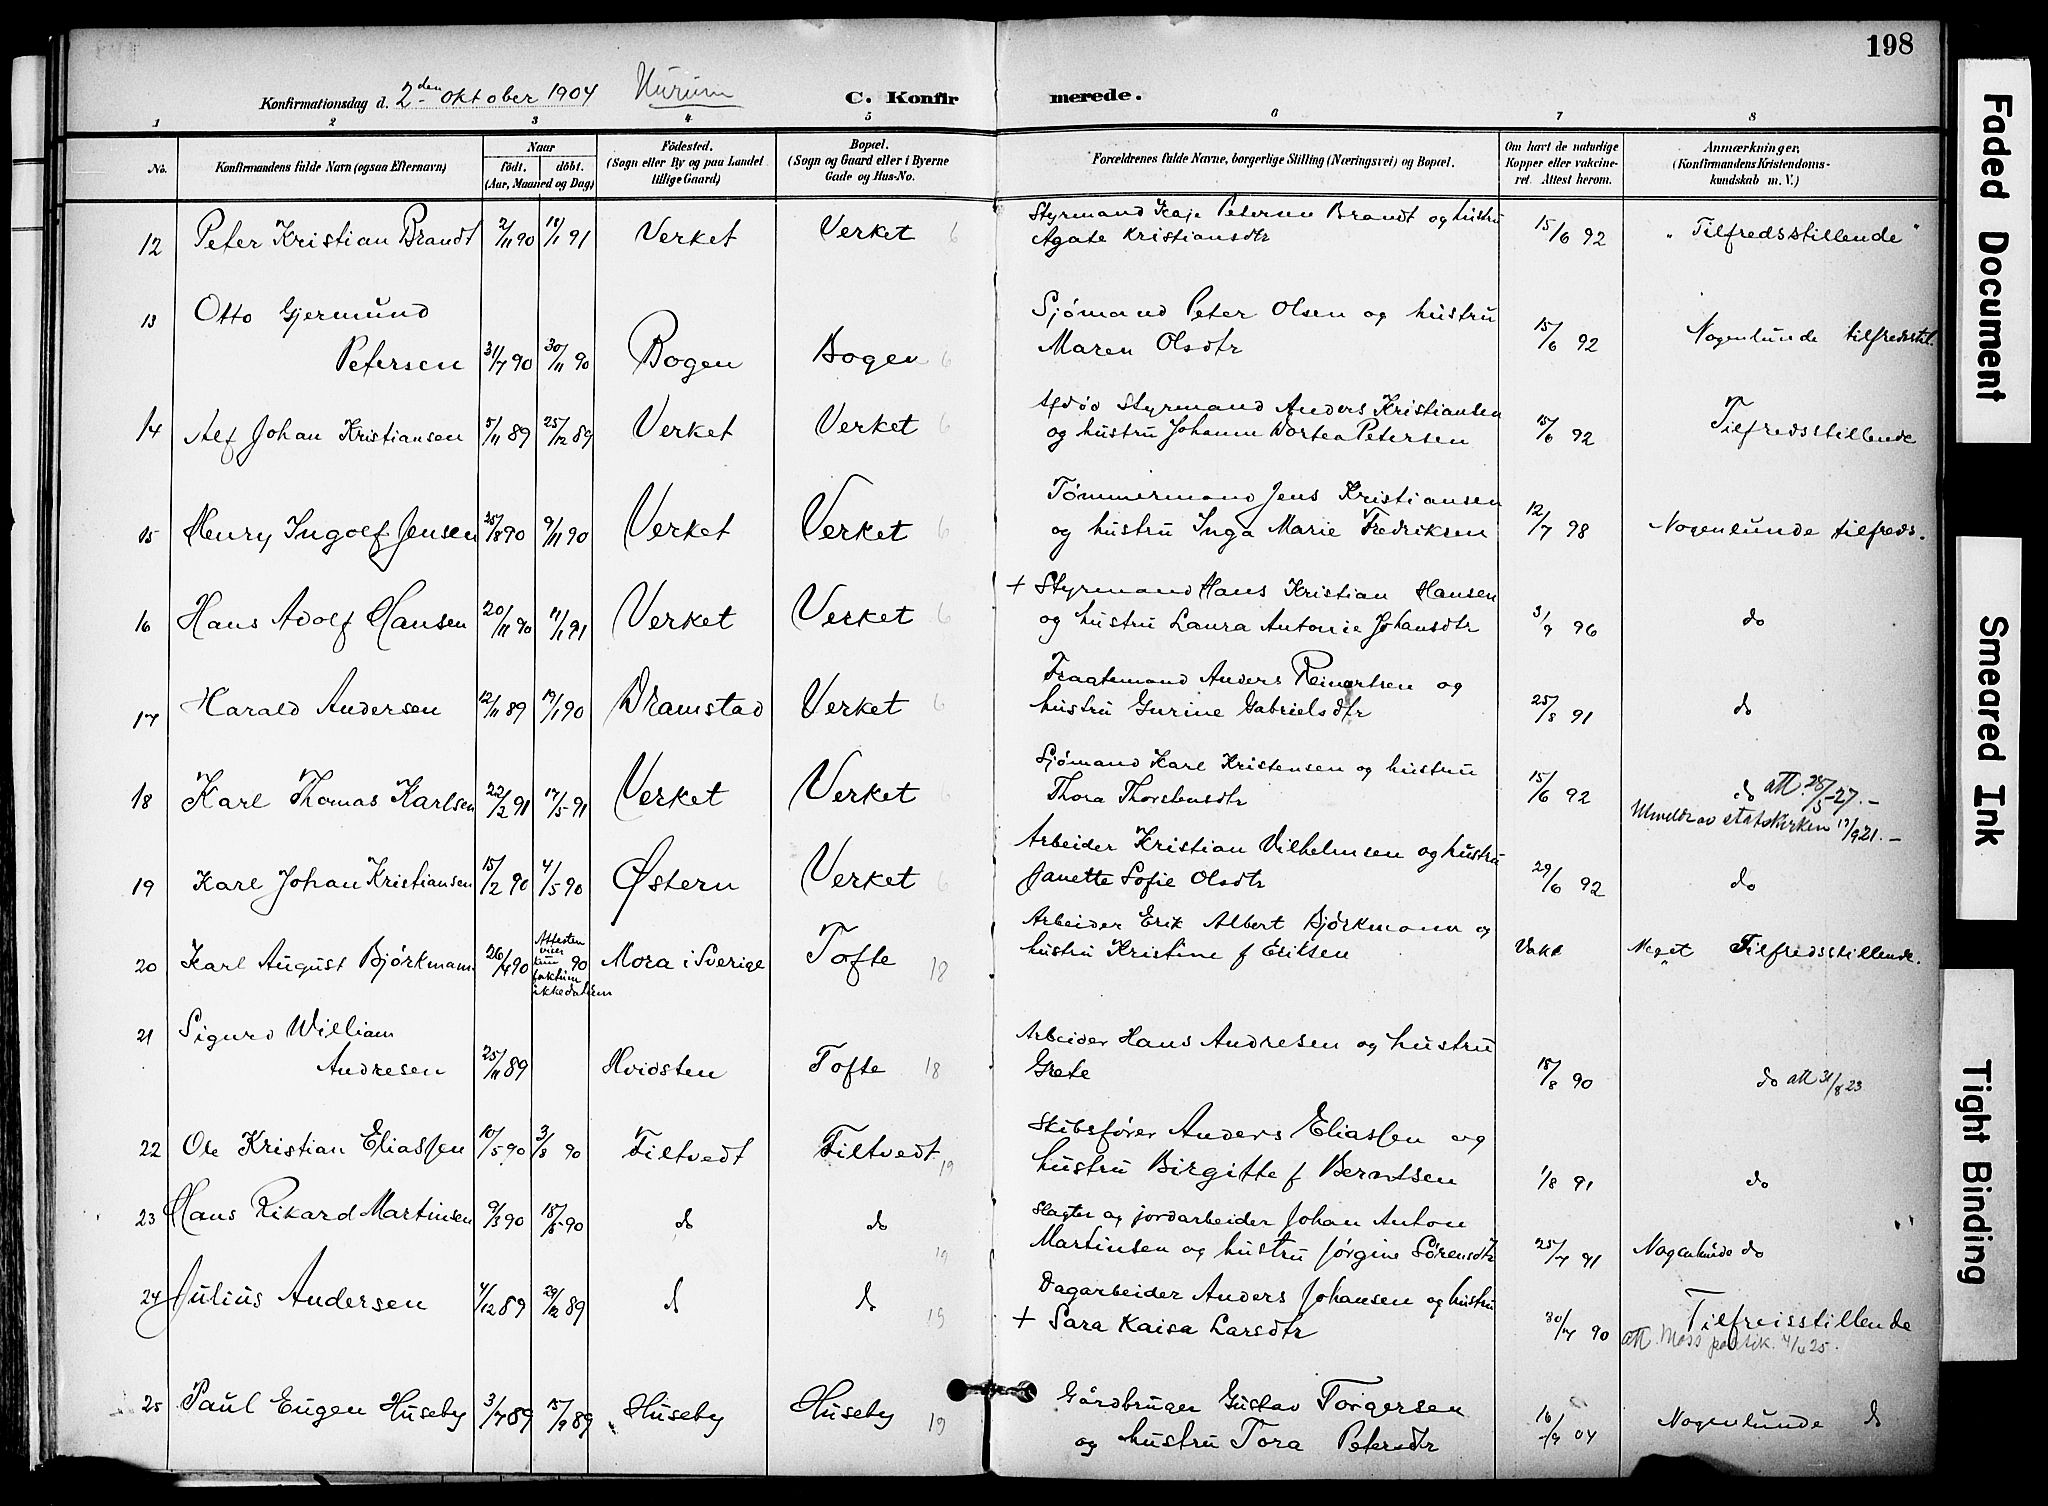 198
Konfirmationsdag d. 2den Oktober 1904 Hurum C. Konfirmerede.
1 2 3 4 5 6 7 8
No. Konfirmandens fulde Navn (ogsaa Efternavn) Naar födt. döbt. (Aar, Maaned og Dag) Födested. (Sogn eller By og paa Landet tillige Gaard) Bopæl. (Sogn og Gaard eller i Byerne Gade og Hus-No. Forældrenes fulde Navne, borgerlige Stilling (Næringsvei) og Bopæl. Om havt de naturlige Kopper eller vakcineret. Attest herom. Anmærkninger, (Konfirmandens Kristendomskundskab m. V.)
12 Peter Kristian Brandt 2/11 90 18/1 91 Verket Verket 6 Styrmand Kaje Petersen Brandt og hustru
Agate Kristiansdtr 15/6 92 "Tilfredsstillende"
13 Otto Gjermund
Petersen 31/7 90 30/11 90 Bogen Bogen 6 Sjömand Peter Olsen og hustru
Maren Olsdtr 15/6 92 Nogenlunde tilfredsstil.
14 Alf Johan Kristiansen 5/11 89 25/12 89 Verket Verket 6 Afdöd Styrmand Anders Kristiansen
og hustru Johanne Dortea Petersen 15/6 92 Tilfredsstillende
15 Henry Ingolf Jensen 25/8 90 9/11 90 Verket Verket 6 Tömmermand Jens Kristiansen
og hustru Inga Marie Fredriksen 12/7 98 Nogenlunde tilfreds.
16 Hans Adolf Hansen 20/11 90 11/1 91 Verket Verket 6 + Styrmand Hans Kristian Hansen
og hustru Laura Antonie Johansdtr 3/7 96 do
17 Harald Andersen 12/11 89 19/1 90 Dramstad Verket 6 Fragtemand Anders Reinertsen og
hustru Gurine Gabrielsdtr 25/8 91 do
18 Karl Thomas Karlsen 22/2 91 17/5 91 Verket Verket 6 Sjömand Karl Kristensen og hustru
Thora Thorstensdtr 15/6 92 do att. 28/5-27.-
Utmeldt av statskirken 17/9 21.-
19 Karl Johan Kristiansen 15/2 90 4/5 90 Östern Verket 6 Arbeider Kristian Vilhelmsen og hustru
Janette Sofie Olsdtr 29/6 92 do
20 Karl August Björkmann 26/4 90 Attesten viser kun faktum ikke datum 90 Mora i Sverige Tofte 18 Arbeider Erik Albert Björkmann og
hustru Kristine f Eriksen Vakc Meget Tilfredsstillende.
21 Sigurd William
Andresen 25/11 89 Hvidsten Tofte 18 Arbeider Hans Andresen og hustru
Grete 18/8 90 do att 31/8 23
22 Ole Kristian Eliassen 10/5 90 3/8 90 Filtvedt Filtvedt 19 Skibsförer Anders Eliassen og
hustru Birgitte f Berntsen 1/8 91 do
23 Hans Rikard Martinsen 9/3 90 18/5 90 do do 19 Slagter og jordarbeider Johan Anton
Martinsen og hustru Jörgine Sörensdtr 25/7 91 Nogenlunde do
24 Julius Andersen 4/12 89 29/12 89 do do 19 Dagarbeider Anders Johansen og hustru
+ Sara Kaisa Larsdtr 30/7 90 Tilfreisstillende
att. Moss politik. 4/4 25.
25 Paul Eugen Huseby 3/7 89 15/9 89 Huseby Huseby 19 Gårdbruger Gustav Torgersen
og hustru Tora Petersdtr 16/9 04 Nogenlunde do
Faded Document
Smeared Ink
Tight Binding